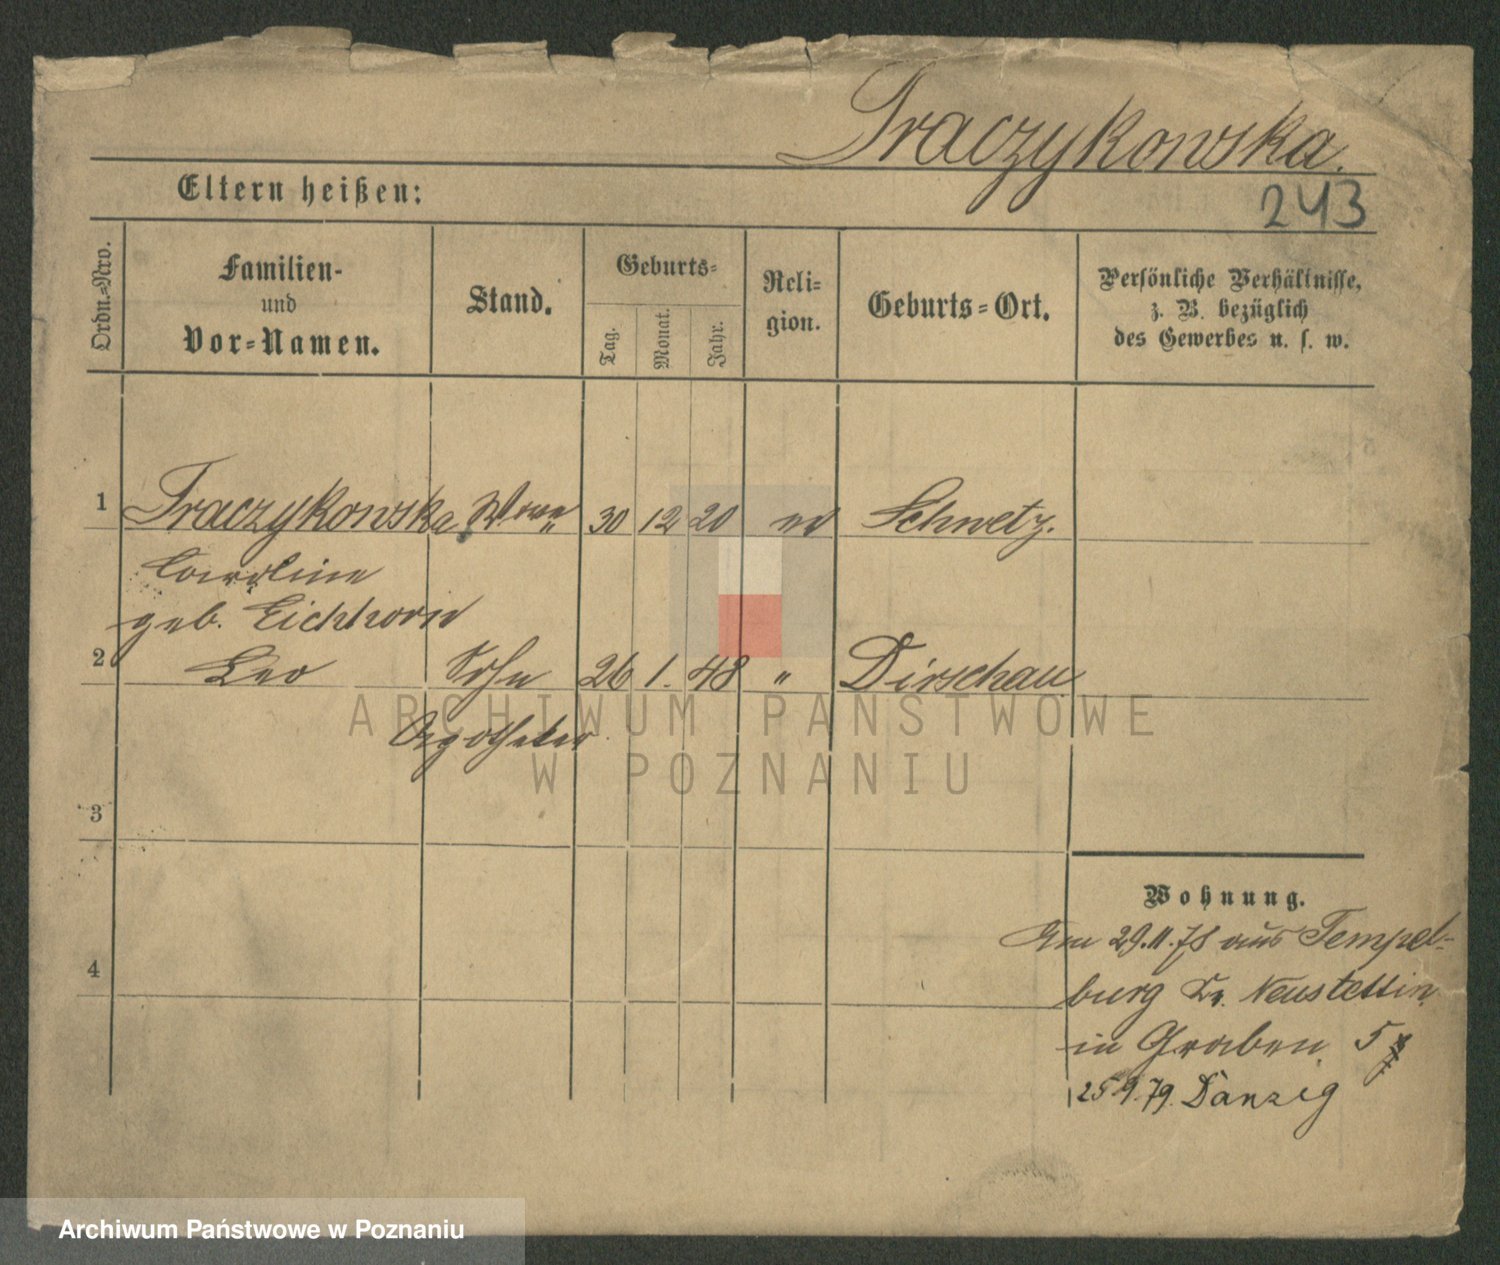 Traczykowska.
243
Eltern heißen:
Ordn.=Nro.
Familien-
und
Vor=Namen.
Stand.
Geburts=
Tag.
Monat.
Jahr.
Reli=
gion.
Geburts=Ort.
Persönliche Verhältnisse,
z. B. bezüglich
des Gewerbes u. s. w.
1 Traczykowska, 30 12 20 Schwetz.
Caroline
geb. Eichhorn
2 Leo Sohn 26 1. 48 " Dirschau
Apotheker
3
4
Wohnung.
29.11.78 aus Tempel-
burg Kr. Neustettin
in Graben 5
25.9.79. Danzig
ARCHIWUM PAŃSTWOWE
W POZNANIU
Archiwum Państwowe w Poznaniu